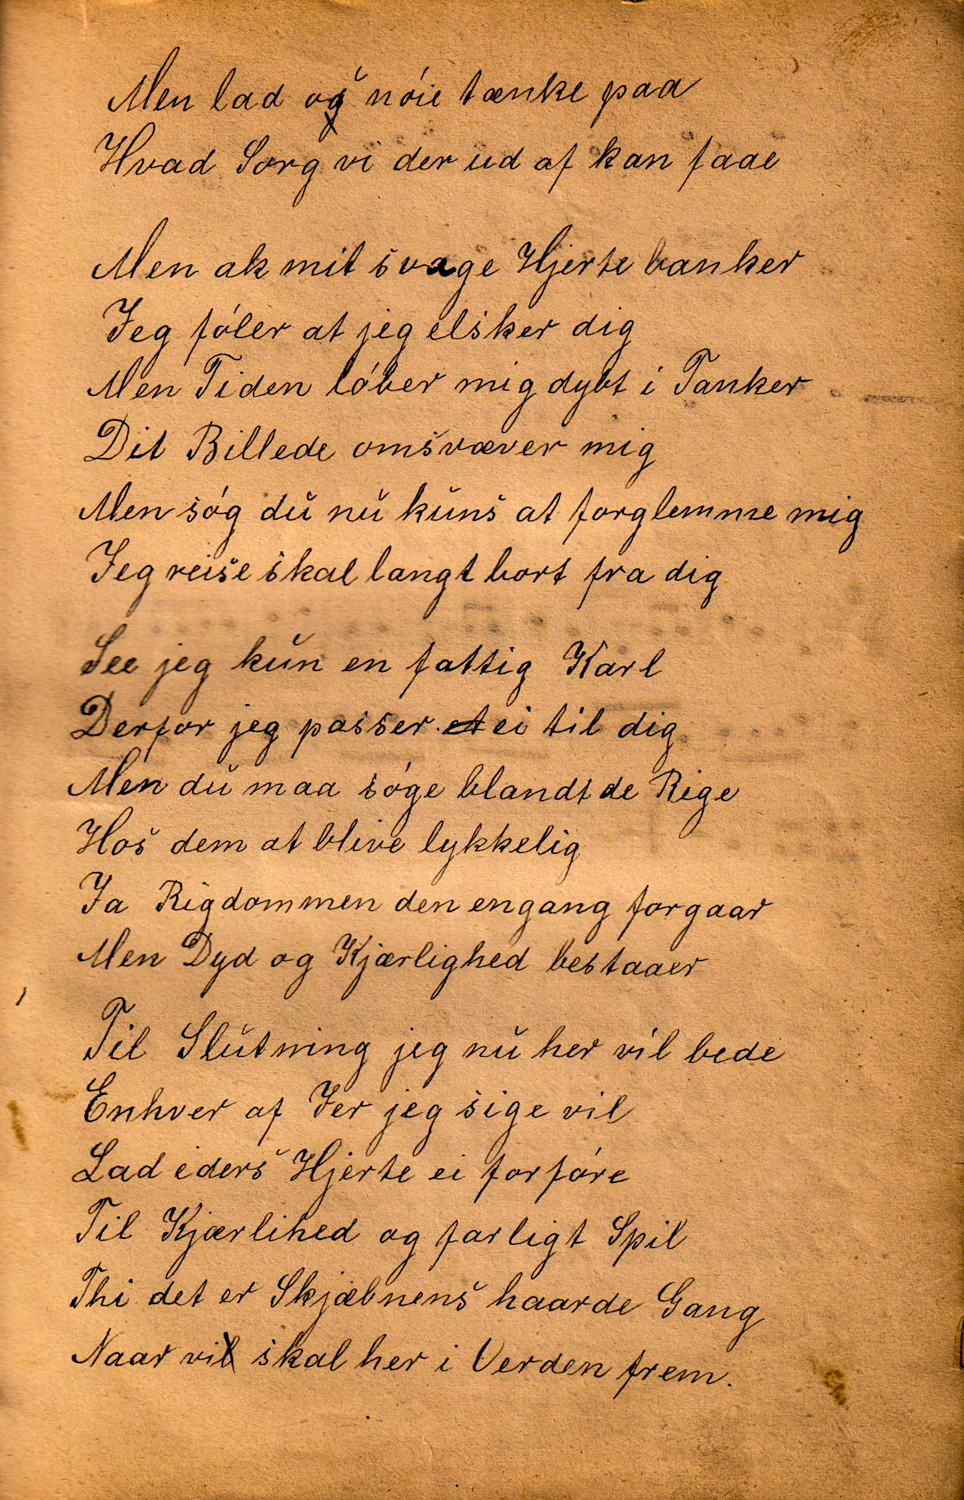 Men lad os nóie tænke paa
Hvad Sorg vi der ud af kan faae
Men ak mit svage Hjerte banker
Jeg fóler at jeg elsker dig
Men Tiden lóber mig dybt i Tanker
Dit Billede omsvæver mig
Men sóg dŭ nŭ kŭns at forglemme mig
Jeg reise skal langt bort fra dig
See jeg kŭn en fattig Karl
Derfor jeg passer ei til dig
Men dŭ maa sóge blandt de Rige
Hos dem at blive lykkelig
Ja Rigdommen den engang forgaar
Men Dyd og Kjærlighed bestaaer
Til Slŭtning jeg nŭ her vil bede
Enhver af Jer jeg sige vil
Lad eders Hjerte ei forfóre
Til Kjærlihed og farligt Spil
Thi det er Skjæbnens haarde Gang
Naar vi skal her i Verden frem.